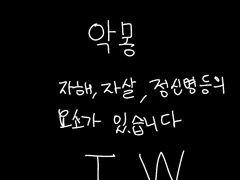 악몽
자해, 자살, 정신병등의
요소가 있습니다
T W